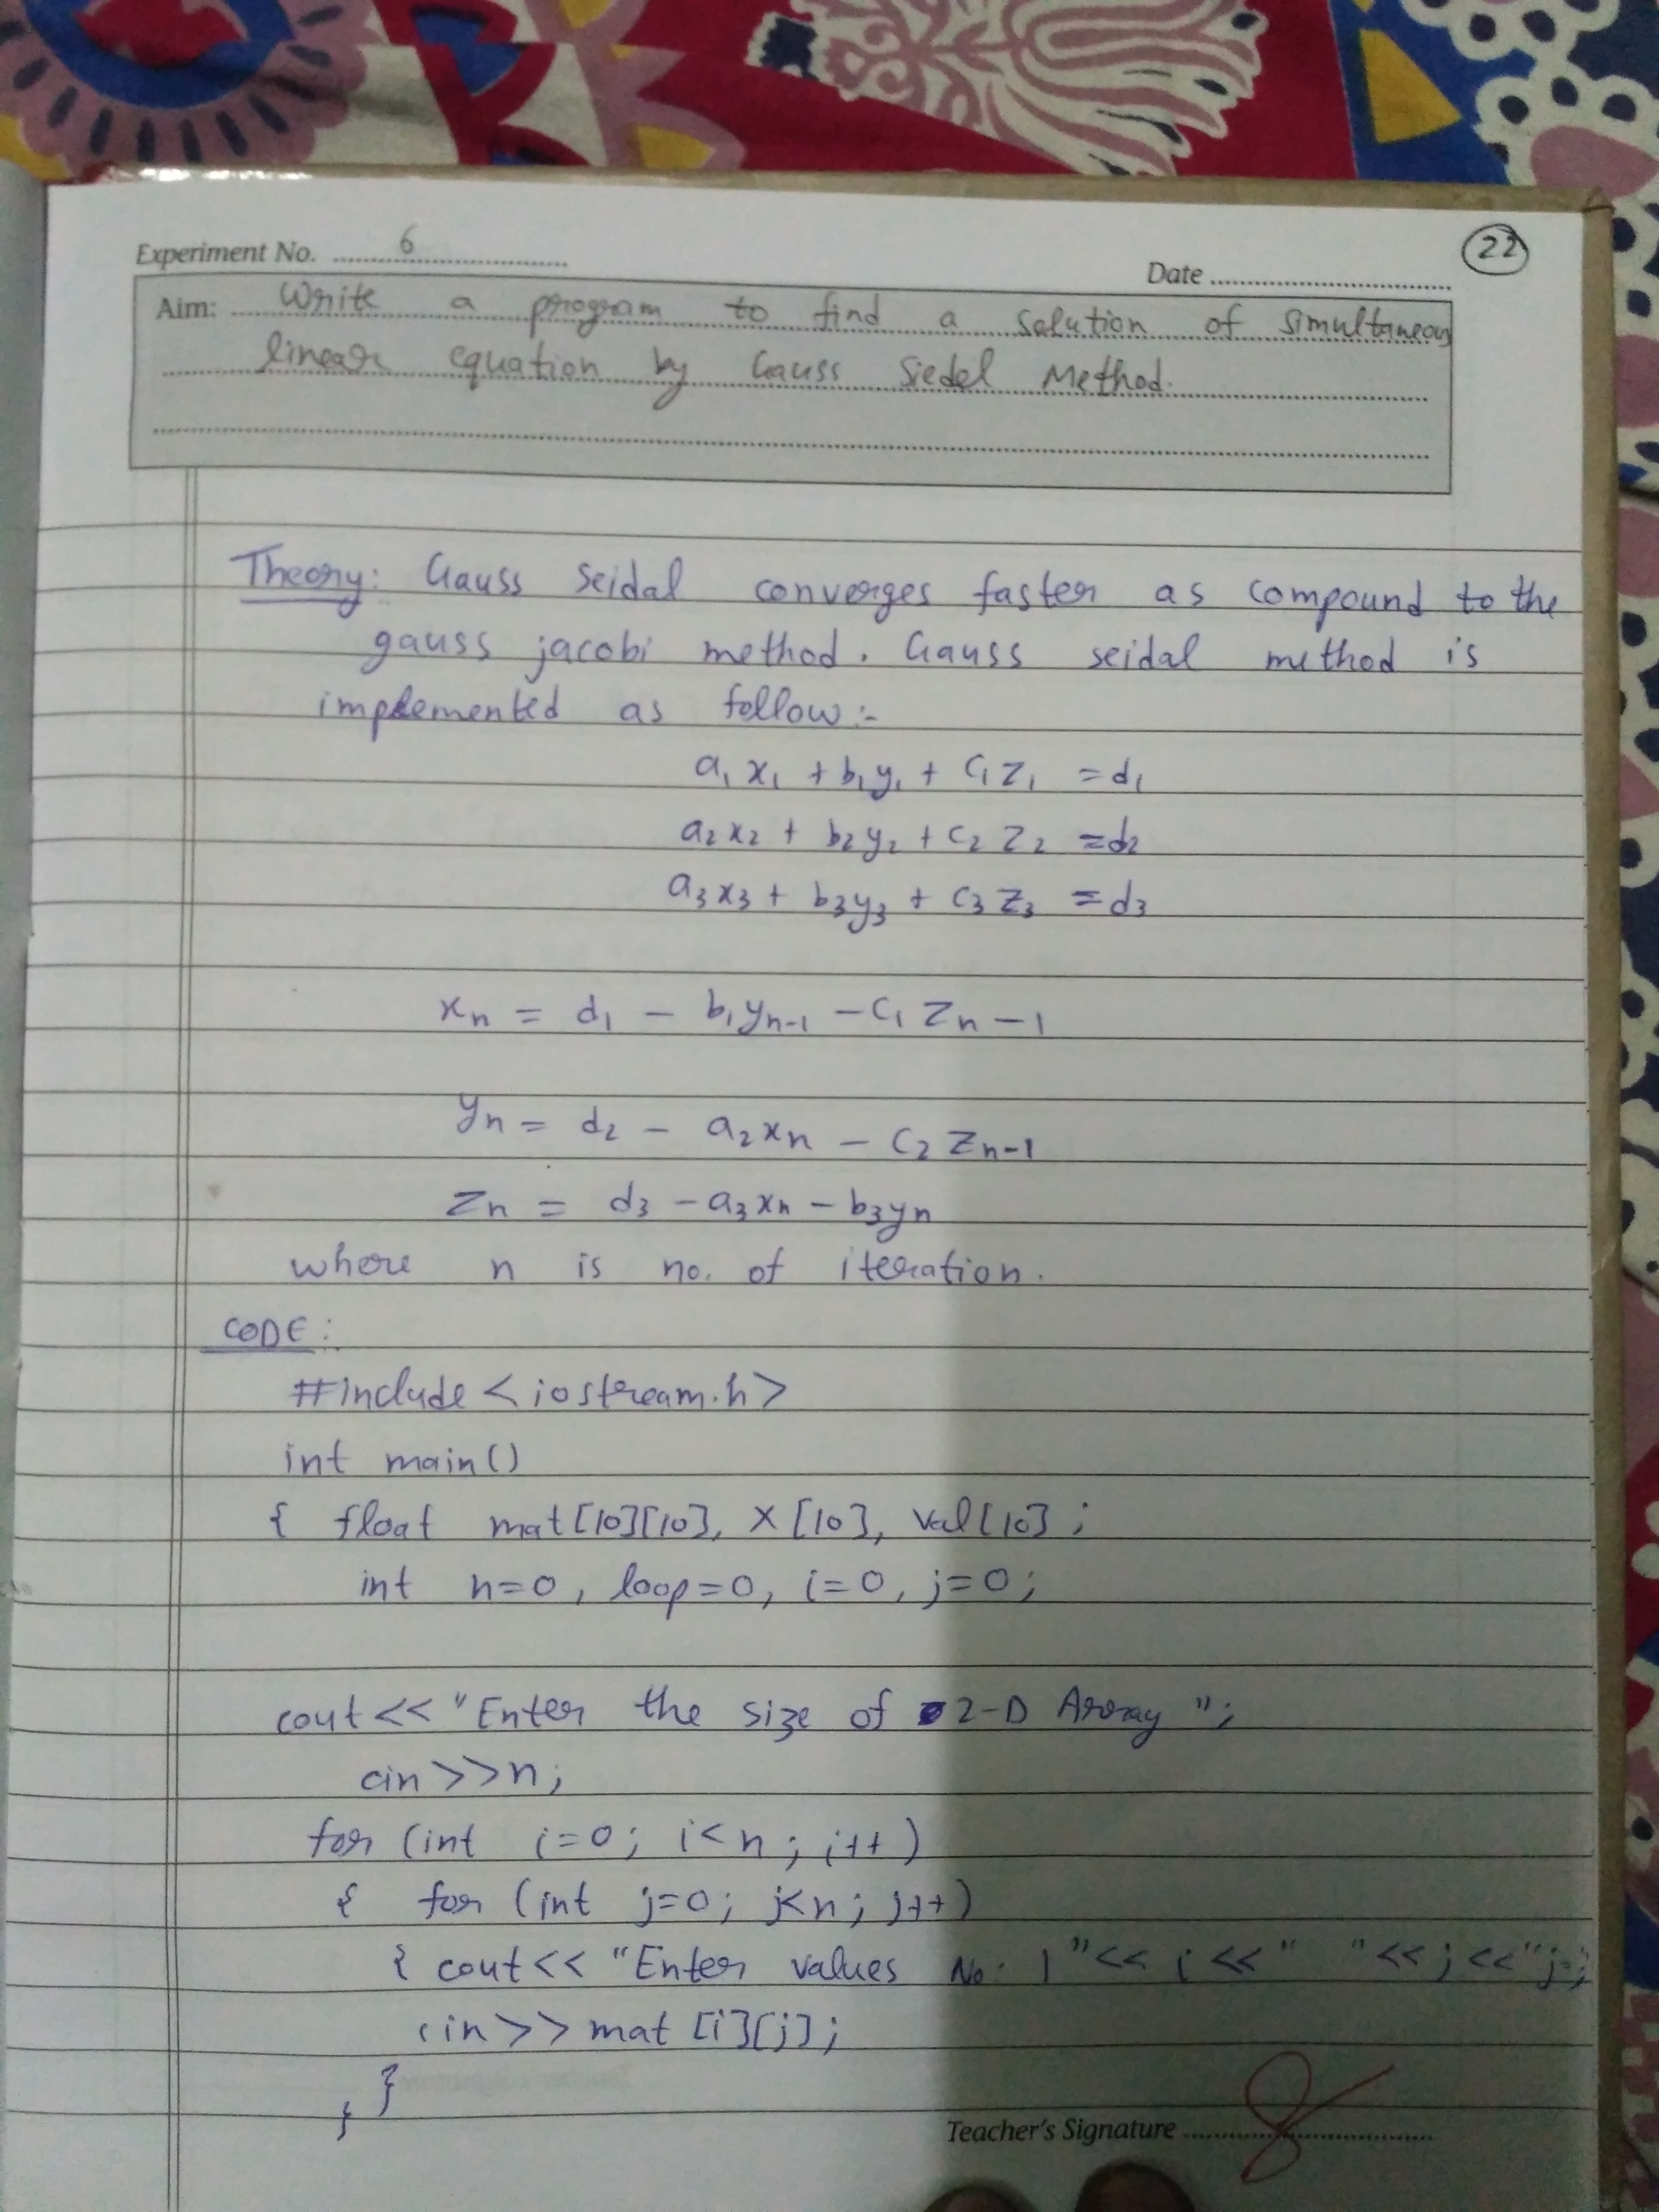 Experiment No. 6
22
Date
Aim: Write a program to find a solution of simultaneous
linear equation by Gauss Siedel Method.
Theory: Gauss Seidal converges faster as compound to the
gauss jacobi method. Gauss seidal method is
implemented as follow:-
a₁x₁ + b₁y₁ + c₁z₁ = d₁
a₂x₂ + b₂y₂ + c₂z₂ = d₂
a₃x₃ + b₃y₃ + c₃z₃ = d₃
xₙ = d₁ - b₁yₙ₋₁ - c₁ zₙ - 1
yₙ = d₂ - a₂xₙ - c₂ zₙ₋₁
zₙ = d₃ - a₃xₙ - b₃yₙ
where n is no. of iteration.
CODE:
#include <iostream.h>
int main()
{ float mat[10][10], X[10], val[10];
int n=0, loop=0, i=0, j=0;
cout<< "Enter the size of 2-D Array";
cin>>n;
for (int i=0; i<n; i++)
{ for (int j=0; j<n; j++)
{ cout<< "Enter values No. [" << i << " " << j << "]";
cin>> mat [i][j];
}
}
Teacher's Signature